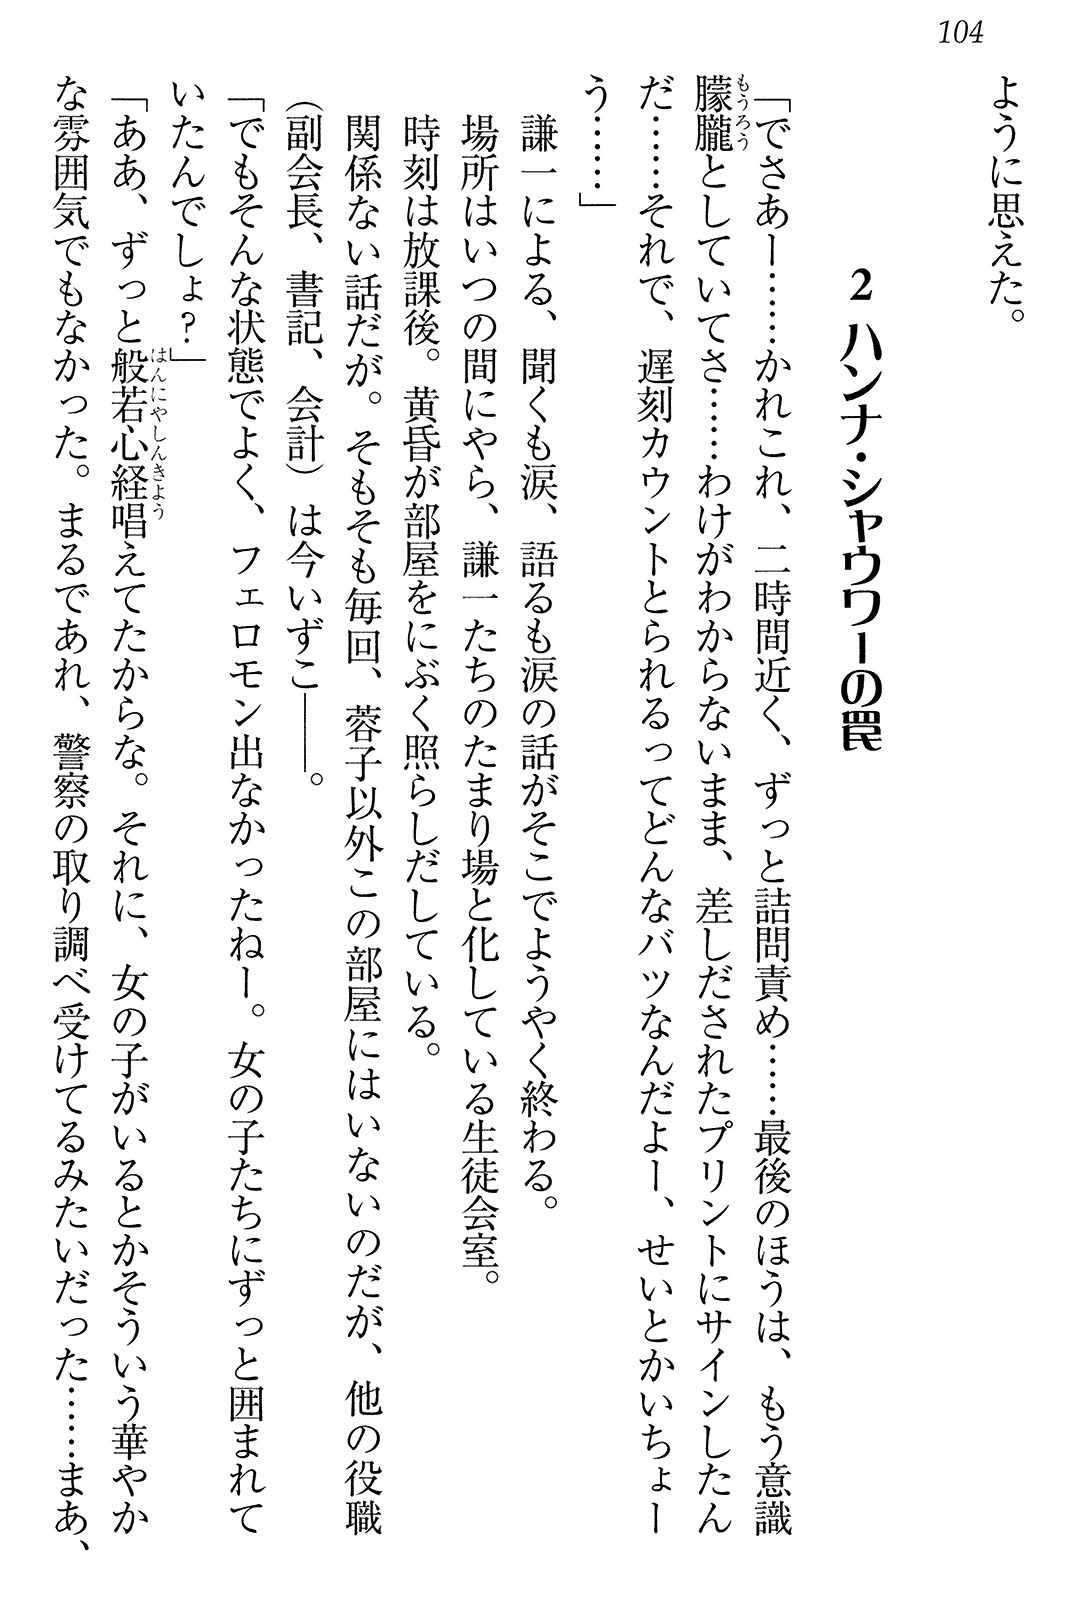 104
ように思えた。
2 ハンナ・シャウワーの罠
「でさあー……かれこれ、二時間近く、ずっと詰問責め……最後のほうは、もう意識
朦朧としていてさ……わけがわからないまま、差しだされたプリントにサインしたん
だ……それで、遅刻カウントとられるってどんなバツなんだよー、せいとかいちょー
う……」
　謙一による、聞くも涙、語るも涙の話がそこでようやく終わる。
　場所はいつの間にやら、謙一たちのたまり場と化している生徒会室。
　時刻は放課後。黄昏が部屋をにぶく照らしだしている。
　関係ない話だが。そもそも毎回、蓉子以外この部屋にはいないのだが、他の役職
（副会長、書記、会計）は今いずこ――。
「でもそんな状態でよく、フェロモン出なかったねー。女の子たちにずっと囲まれて
いたんでしょ？」
「ああ、ずっと般若心経唱えてたからな。それに、女の子がいるとかそういう華やか
な雰囲気でもなかった。まるであれ、警察の取り調べ受けてるみたいだった……まあ、